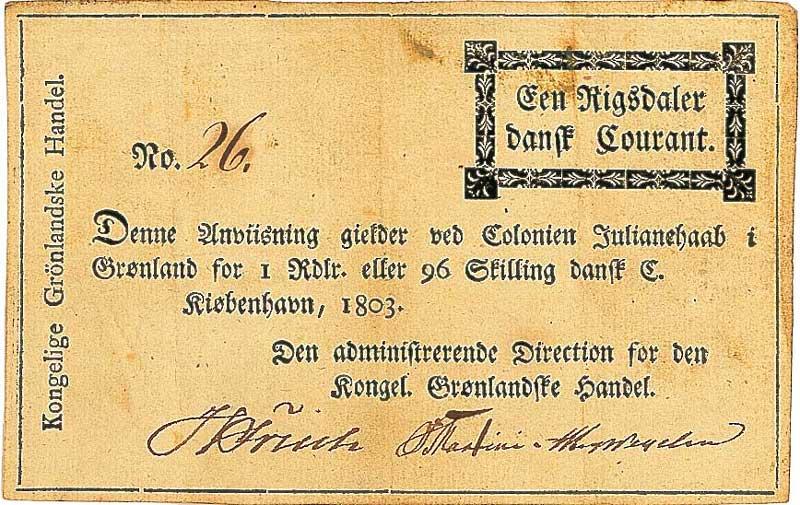 Kongelige Grönlandske Handel.
Een Rigsdaler
dansk Courant.
No. 26.
Denne Anviisning gielder ved Colonien Julianehaab i
Grønland for 1 Rdlr. eller 96 Skilling dansk C.
Kiøbenhavn, 1803.
Den administrerende Direction for den
Kongel. Grønlandske Handel.